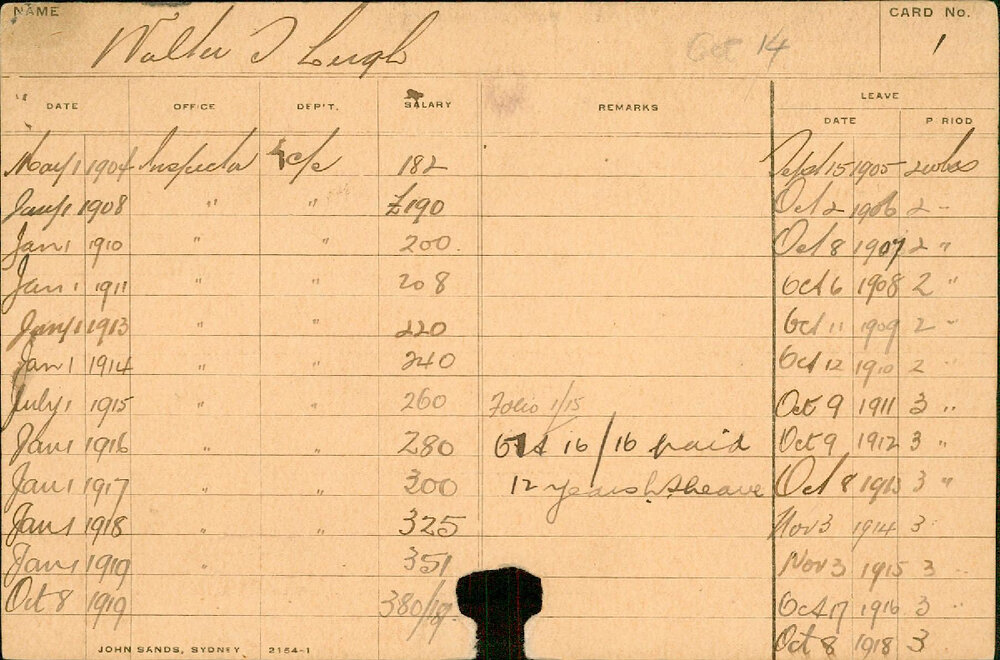 NAME CARD No.
Walter I Leigh Oct 14 1
DATE OFFICE DEP'T. SALARY REMARKS LEAVE
DATE P RIOD
May 1 1904 Inspector 182 Sept 15 1905 2 wks
Jany 1 1908 " " £190 Oct 2 1906 2 "
Jan 1 1910 " " 200 Oct 8 1907 2 "
Jan 1 1911 " " 208 Oct 6 1908 2 "
Jany 1 1913 " " 220 Oct 11 1909 2 "
Jan 1 1914 " " 240 Oct 12 1910 2 "
July 1 1915 " " 260 Folio 1/15 Oct 9 1911 3 "
Jan 1 1916 " " 280 Oct 16/16 paid Oct 9 1912 3 "
Jan 1 1917 " " 300 12 years Oct 8 1913 3 "
Jan 1 1918 " 325 Nov 3 1914 3
Jany 1919 " 351 Nov 3 1915 3
Oct 8 1919 380/19/ Oct 17 1916 3 "
Oct 8 1918 3
JOHN SANDS, SYDNEY 2154-1